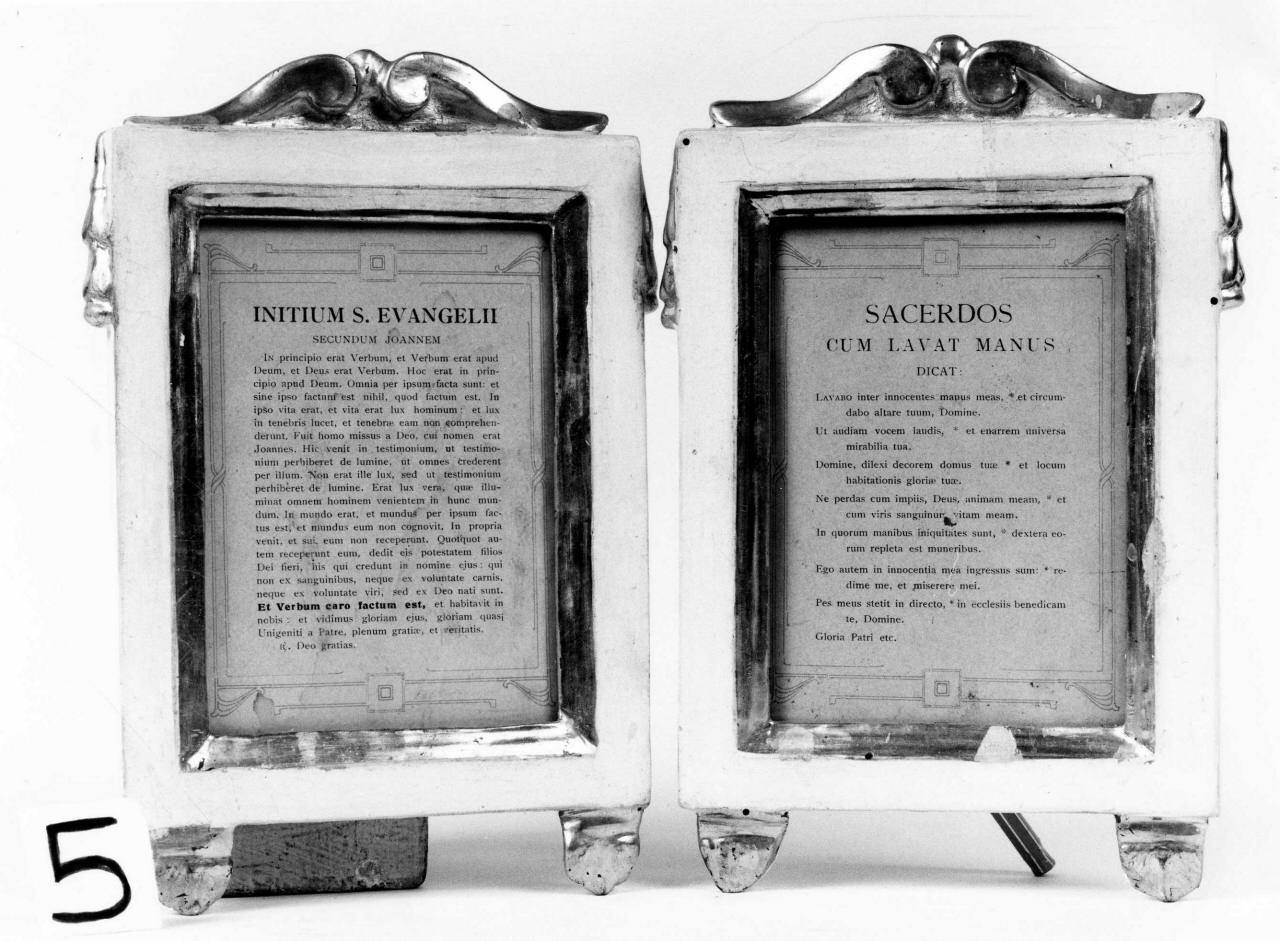 INITIUM S. EVANGELII
SECUNDUM JOANNEM
In principio erat Verbum, et Verbum erat apud
Deum, et Deus erat Verbum. Hoc erat in prin-
cipio apud Deum. Omnia per ipsum facta sunt: et
sine ipso factum est nihil, quod factum est. In
ipso vita erat, et vita erat lux hominum: et lux
in tenebris lucet, et tenebræ eam non comprehen-
derunt. Fuit homo missus a Deo, cui nomen erat
Joannes. Hic venit in testimonium, ut testimo-
nium perhiberet de lumine, ut omnes crederent
per illum. Non erat ille lux, sed ut testimonium
perhiberet de lumine. Erat lux vera, quæ illu-
minat omnem hominem venientem in hunc mun-
dum. In mundo erat, et mundus per ipsum fac-
tus est, et mundus eum non cognovit. In propria
venit, et sui eum non receperunt. Quotquot au-
tem receperunt eum, dedit eis potestatem filios
Dei fieri, his qui credunt in nomine ejus: qui
non ex sanguinibus, neque ex voluntate carnis,
neque ex voluntate viri, sed ex Deo nati sunt.
Et Verbum caro factum est, et habitavit in
nobis: et vidimus gloriam ejus, gloriam quasi
Unigeniti a Patre, plenum gratiæ, et veritatis.
℟. Deo gratias.
SACERDOS
CUM LAVAT MANUS
DICAT:
Lavabo inter innocentes manus meas, * et circum-
dabo altare tuum, Domine.
Ut audiam vocem laudis, * et enarrem universa
mirabilia tua.
Domine, dilexi decorem domus tuæ * et locum
habitationis gloriæ tuæ.
Ne perdas cum impiis, Deus, animam meam, * et
cum viris sanguinum vitam meam.
In quorum manibus iniquitates sunt, * dextera eo-
rum repleta est muneribus.
Ego autem in innocentia mea ingressus sum: * re-
dime me, et miserere mei.
Pes meus stetit in directo, * in ecclesiis benedicam
te, Domine.
Gloria Patri etc.
5